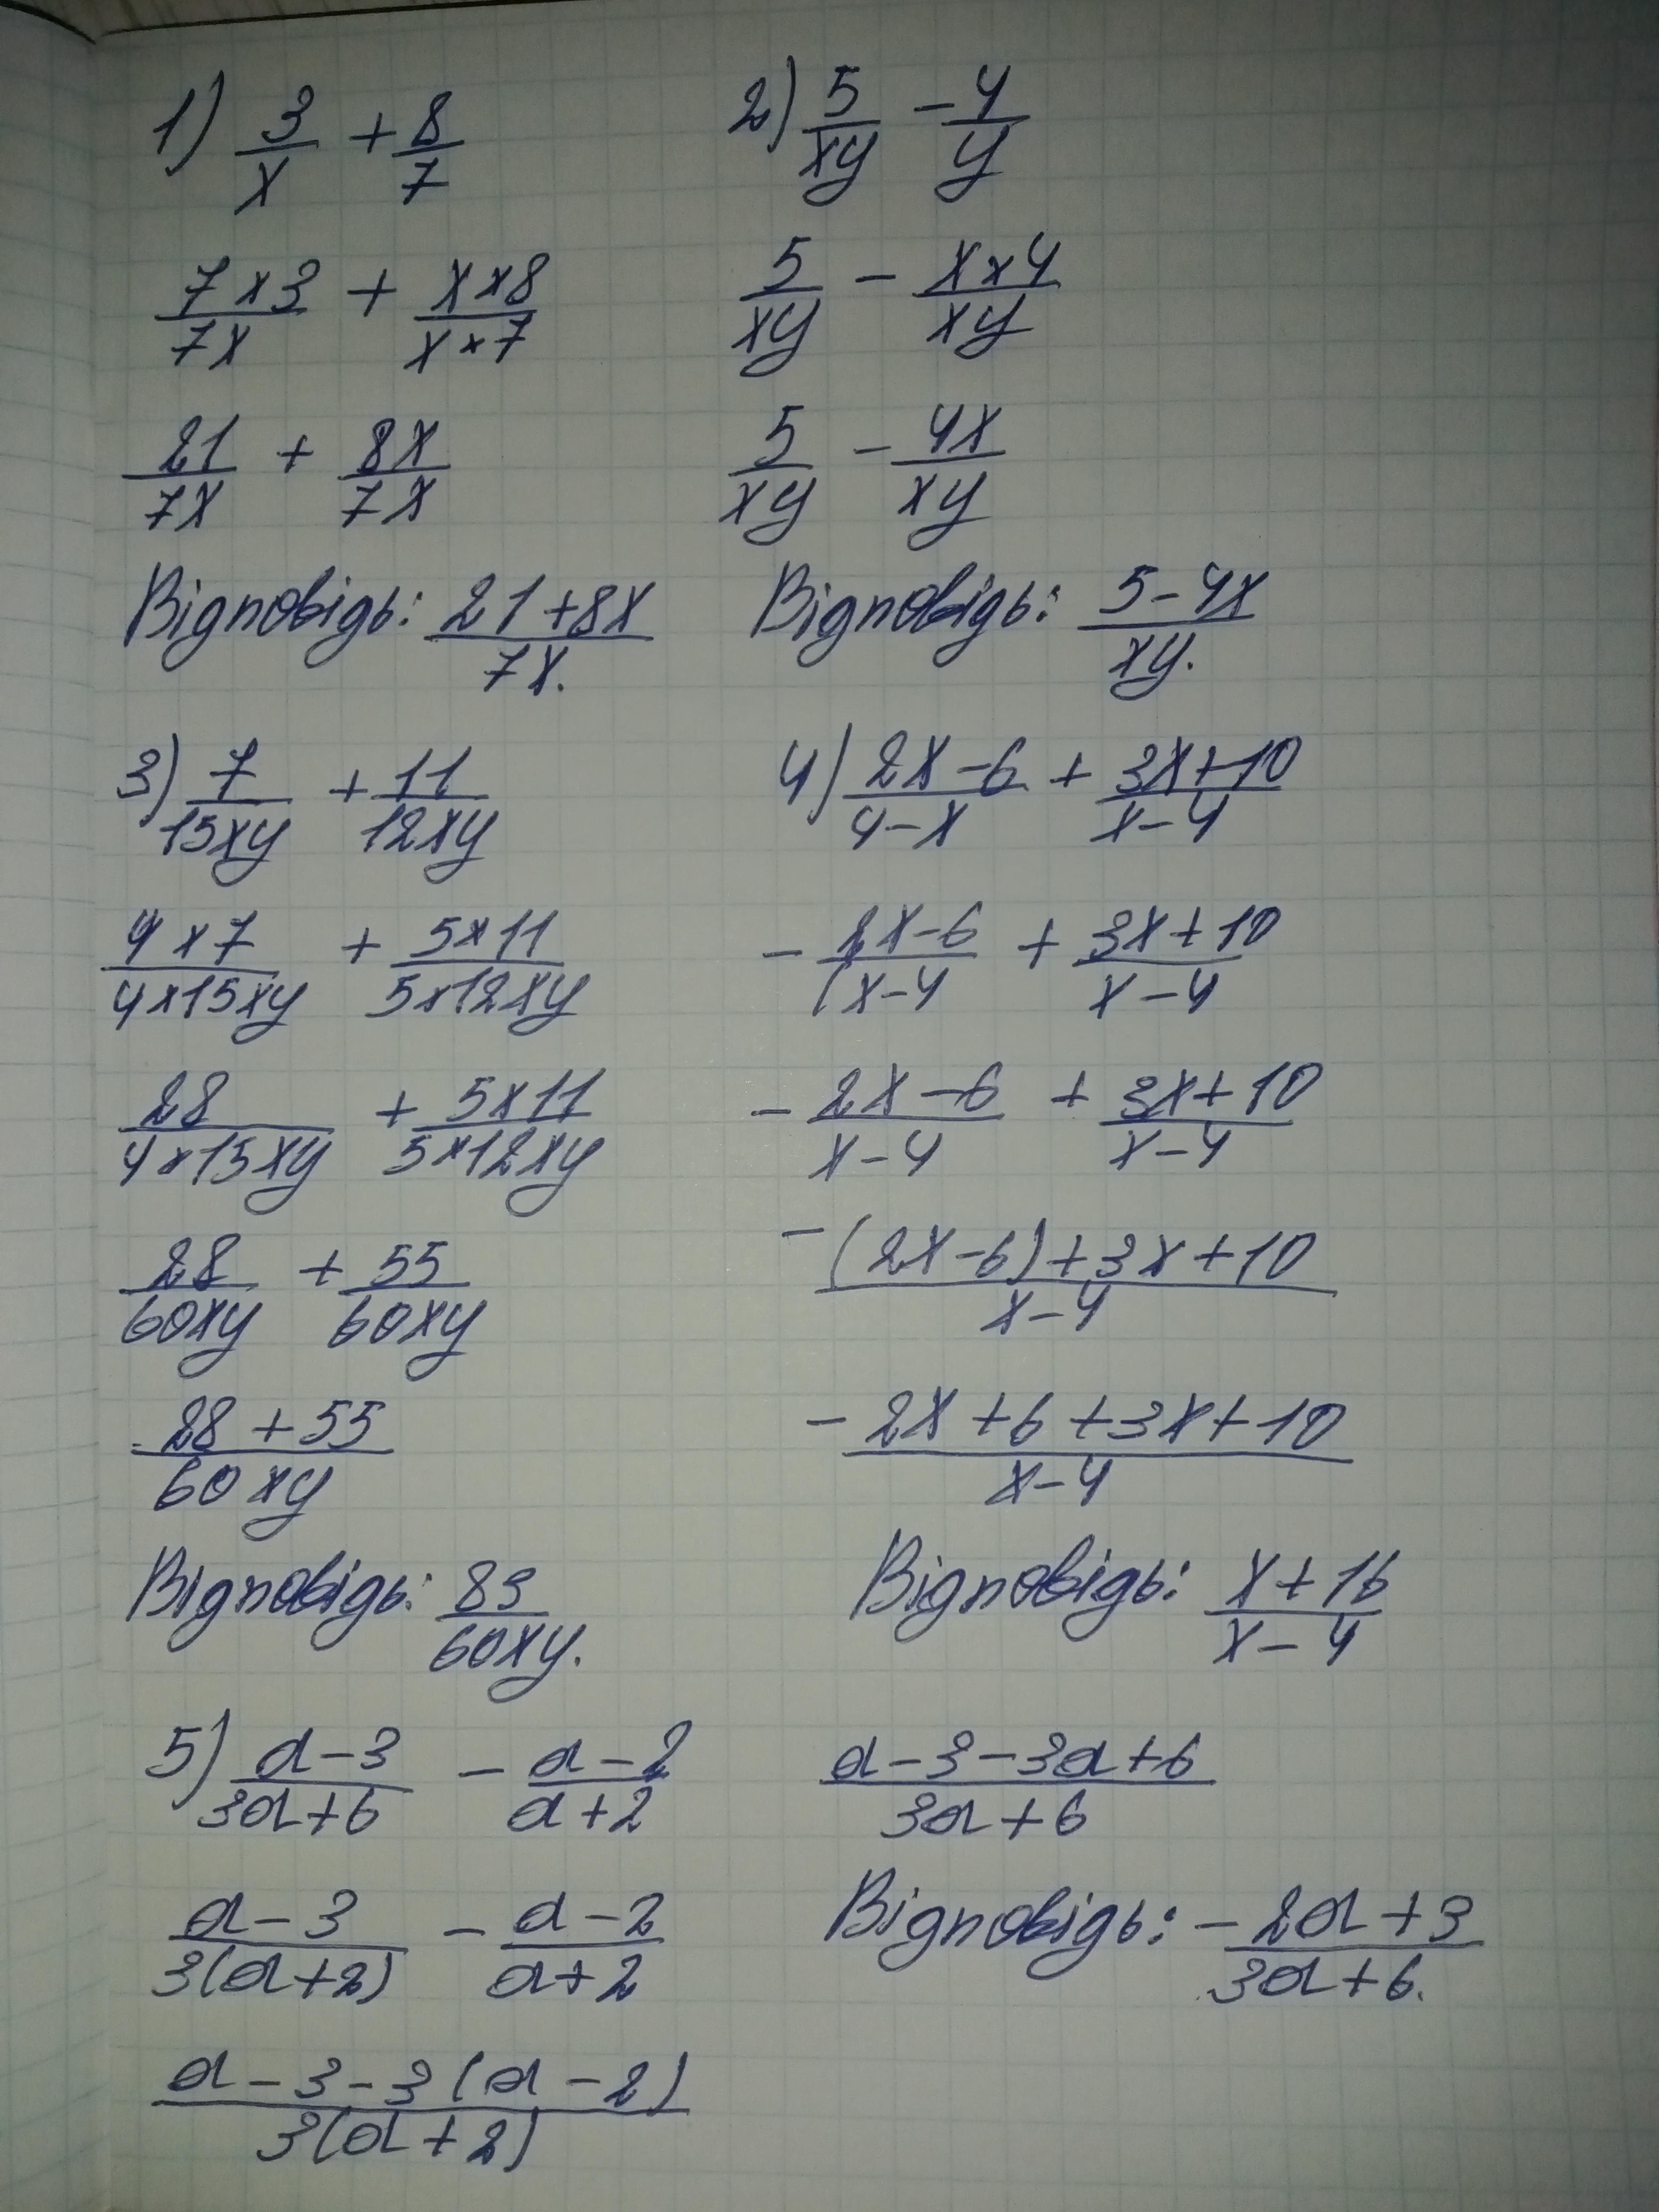 1) 3/x + 8/7
7×3/7x + x×8/x×7
21/7x + 8x/7x
Відповідь: 21+8x/7x.
2) 5/xy - 4/y
5/xy - x×4/xy
5/xy - 4x/xy
Відповідь: 5-4x/xy.
3) 7/15xy + 11/12xy
4×7/4×15xy + 5×11/5×12xy
28/4×15xy + 5×11/5×12xy
28/60xy + 55/60xy
28+55/60xy
Відповідь: 83/60xy.
4) 2x-6/4-x + 3x+10/x-4
- 2x-6/(x-4 + 3x+10/x-4
- 2x-6/x-4 + 3x+10/x-4
-(2x-6)+3x+10/x-4
-2x+6+3x+10/x-4
Відповідь: x+16/x-4
5) a-3/3a+6 - a-2/a+2
a-3/3(a+2) - a-2/a+2
a-3-3(a-2)/3(a+2)
a-3-3a+6/3a+6
Відповідь: -2a+3/3a+6.